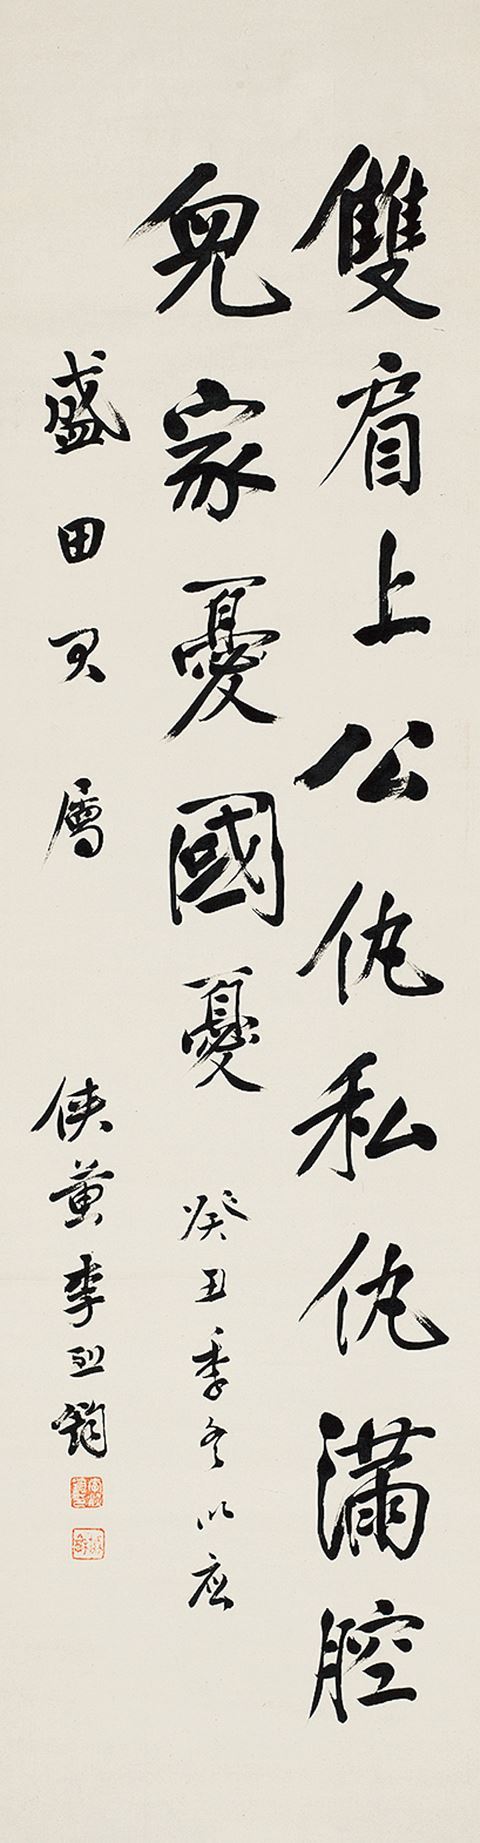 雙肩上公仇私仇滿腔
兒家憂國憂 癸丑季冬以應
盛田君屬 俠黃李烈鈞